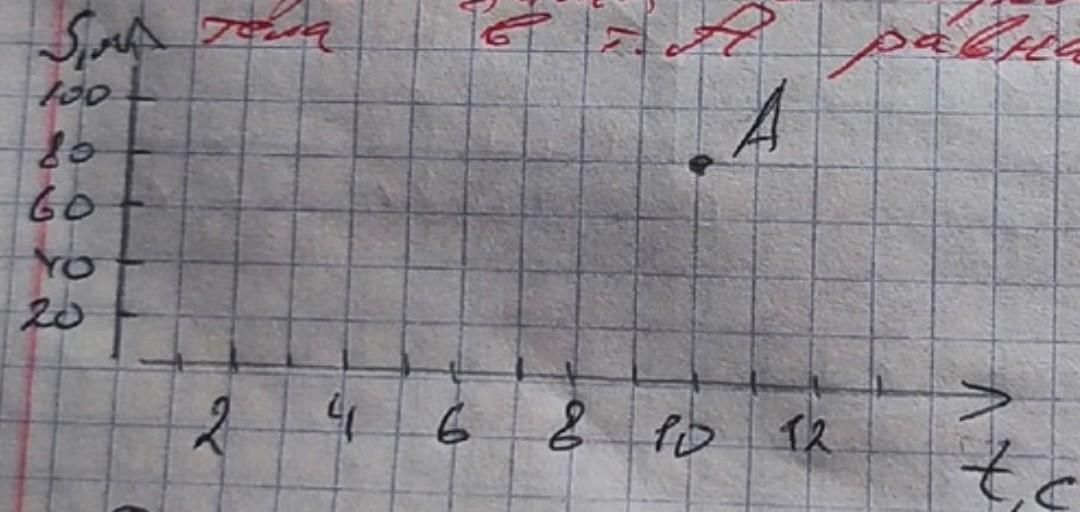 S,м тела в т. А равна
100
А
80
60
40
20
2 4 6 8 10 12
t,c